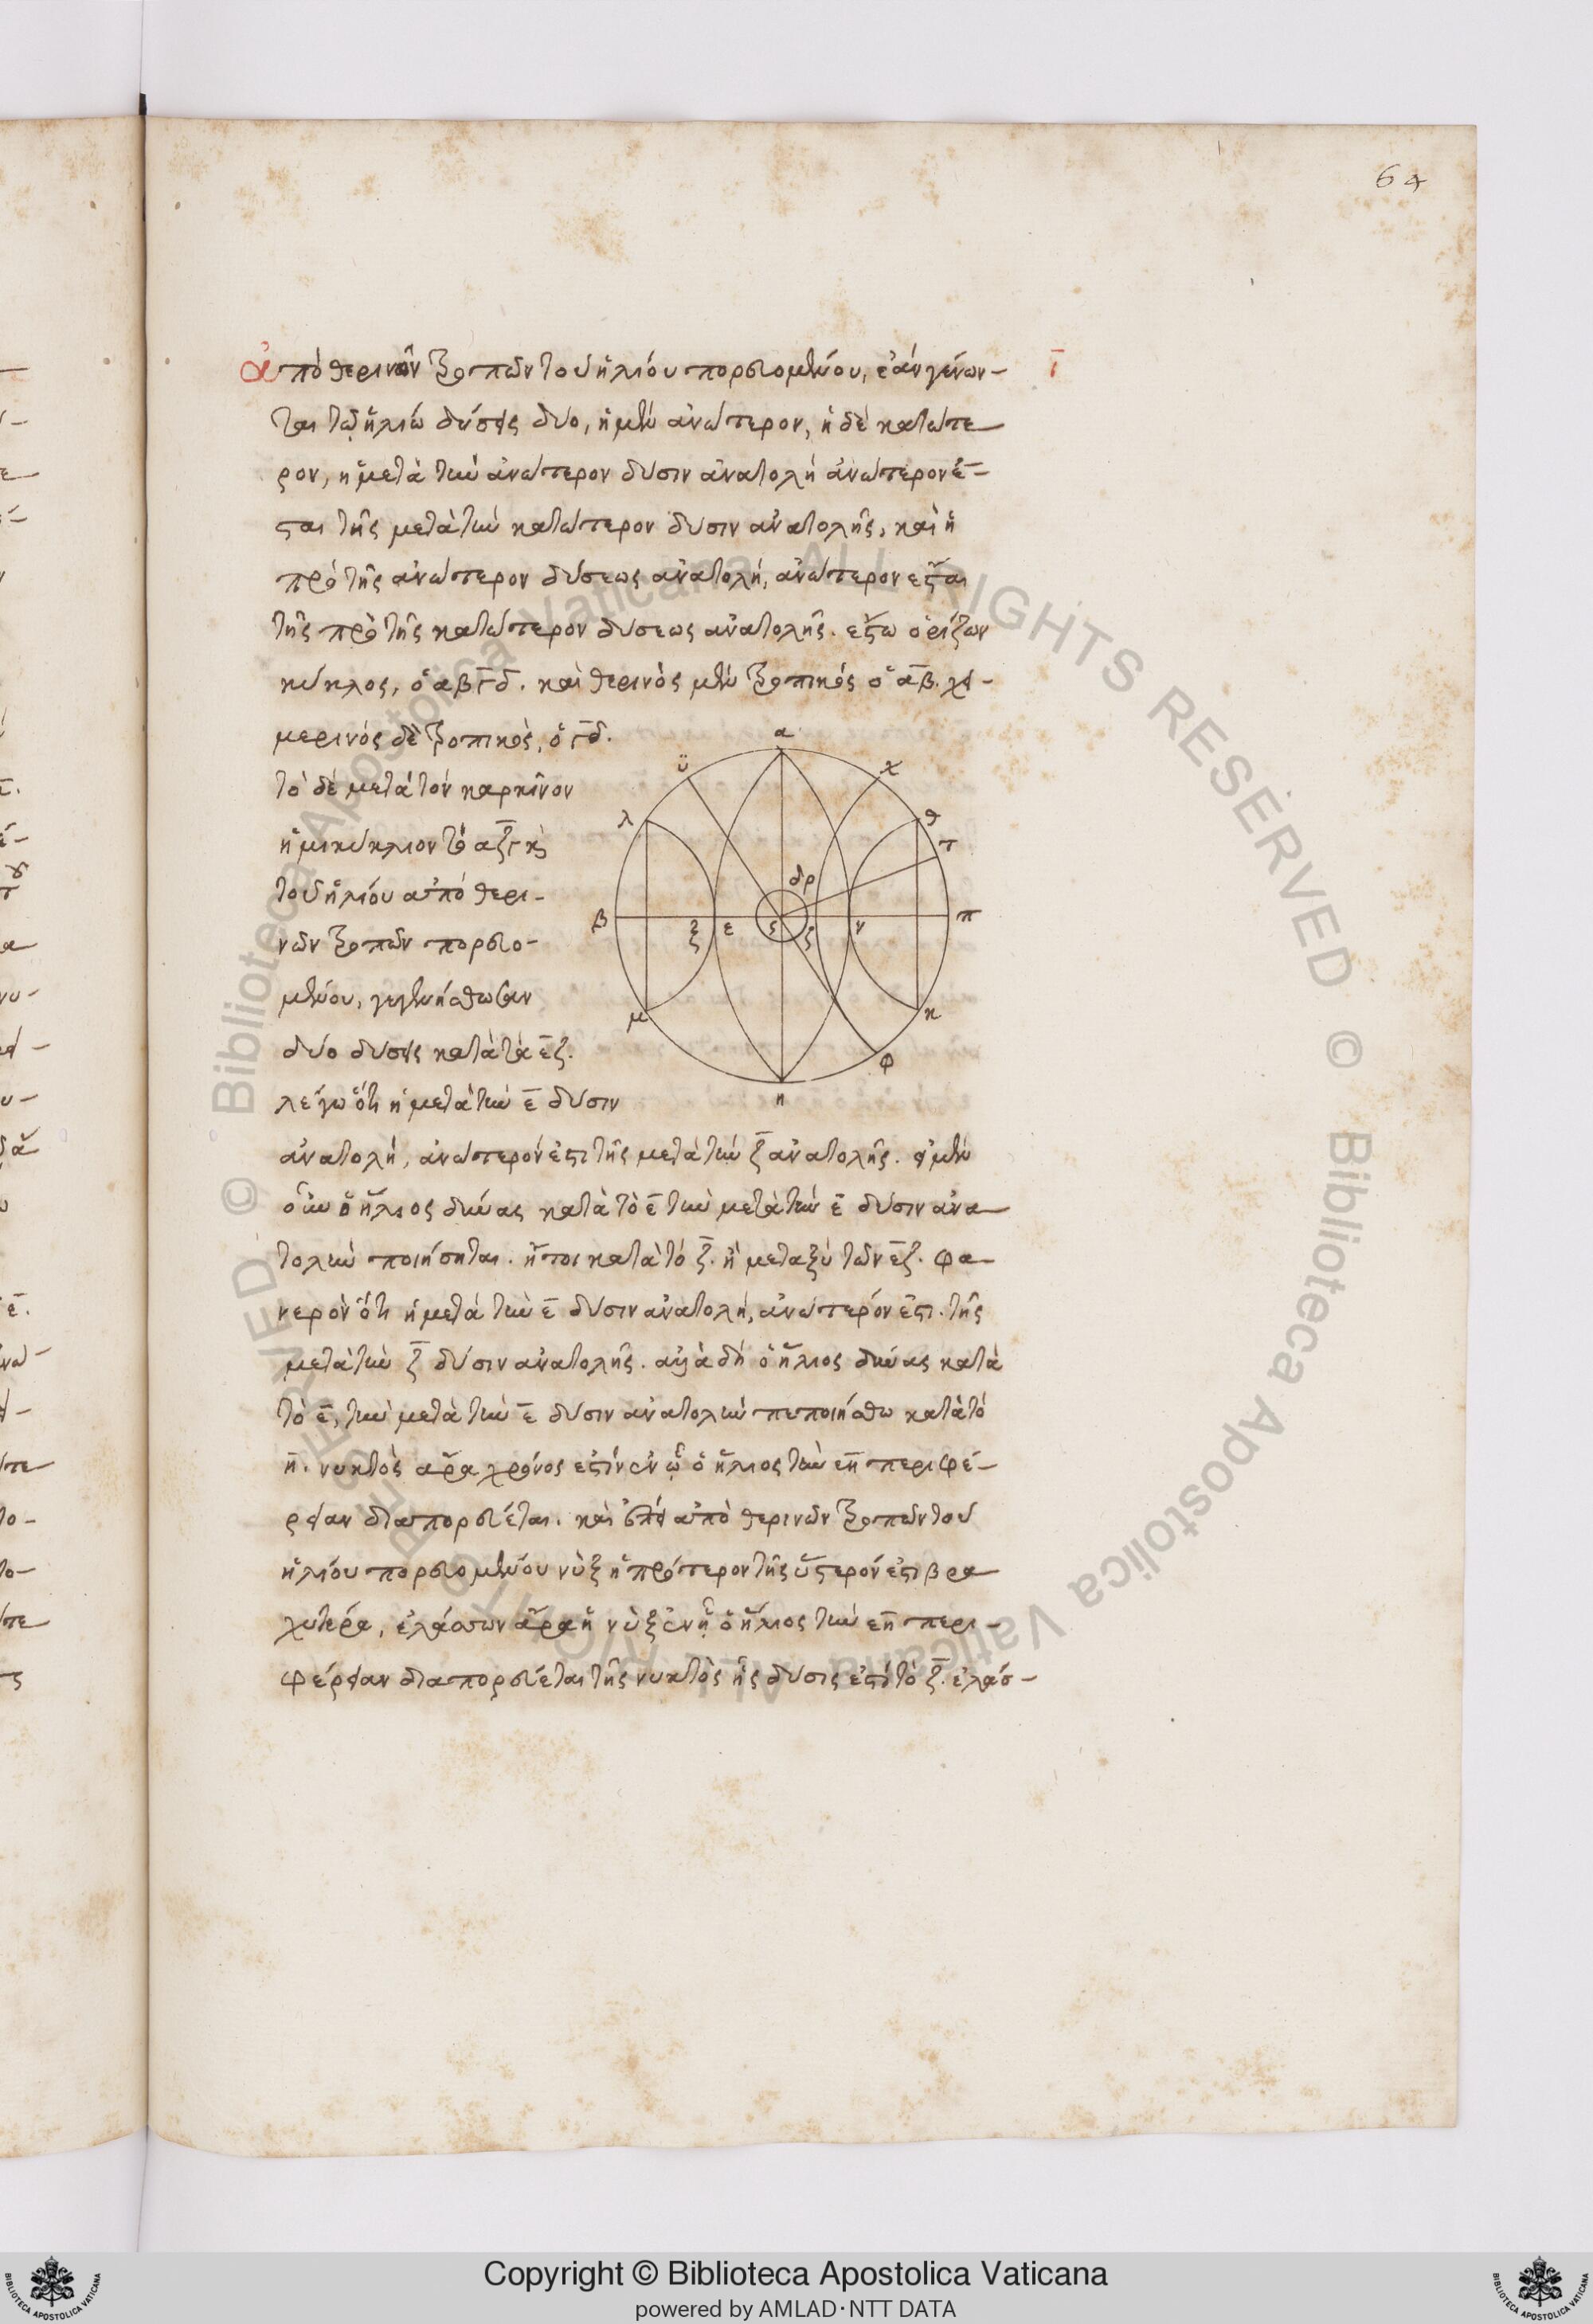 64
ἀπὸ θερινῶν τροπῶν τοῦ ἡλίου πορευομένου, ἐὰν γένων-
ται τῷ ἡλίῳ δύσεις δύο, ἡ μὲν ἀνώτερον, ἡ δὲ κατώτε
ρον, ἡ μετὰ τὴν ἀνώτερον δύσιν ἀνατολὴ ἀνώτερον ἔ-
σται τῆς μετὰ τὴν κατώτερον δύσιν ἀνατολῆς, καὶ ἡ
πρὸ τῆς ἀνώτερον δύσεως ἀνατολή, ἀνώτερον ἔσται
τῆς πρὸ τῆς κατώτερον δύσεως ἀνατολῆς. ἔστω ὁρίζων
κύκλος, ὁ αβγδ. καὶ θερινὸς μὲν τροπικός ὁ αβ. χει-
μερινὸς δὲ τροπικὸς, ὁ γδ.
τὸ δὲ μετὰ τὸν καρκίνον
ἡμικύκλιον τὸ αζγ καὶ
τοῦ ἡλίου ἀπὸ θερι-
νῶν τροπῶν πορευο-
μένου, γεγενήσθωσαν
δύο δύσεις κατὰ τὰ εζ.
λέγω ὅτι ἡ μετὰ τὴν ε δύσιν
ἀνατολή, ἀνώτερόν ἐστι τῆς μετὰ τὴν ζ ἀνατολῆς. εἰ μὲν
οὖν ὁ ἥλιος δύνας κατὰ τὸ ε τὴν μετὰ τὴν ε δύσιν ἀνα
τολὴν ποιήσηται. ἤτοι κατὰ τὸ ζ. ἢ μεταξὺ τῶν εζ. φα-
νερὸν ὅτι ἡ μετὰ τὴν ε δύσιν ἀνατολή, ἀνώτερόν ἐστι. τῆς
μετὰ τὴν ζ δύσιν ἀνατολῆς. ἀλλὰ δὴ ὁ ἥλιος δύνας κατὰ
τὸ ε, τὴν μετὰ τὴν ε δύσιν ἀνατολὴν πεποιήσθω κατὰ τὸ
η. νυκτὸς ἄρα χρόνος ἐστὶν ἐν ᾧ ὁ ἥλιος τὴν εη περιφέ-
ρειαν διαπορεύεται. καὶ ἐπεὶ ἀπὸ θερινῶν τροπῶν τοῦ
ἡλίου πορευομένου νὺξ ἡ πρότερον τῆς ὕστερόν ἐστι βρα
χυτέρα, ἐλάσσων ἄρα ἡ νὺξ ἐν ᾗ ὁ ἥλιος τὴν εη περι-
φέρειαν διαπορεύεται τῆς νυκτὸς ἧς δύσις ἐστὶ τὸ ζ. ἐλάσ-
α
υ χ
λ θ
τ
δρ
β ξ ε ς ζ ν π
μ κ
φ
η
Copyright © Biblioteca Apostolica Vaticana
powered by AMLAD·NTT DATA